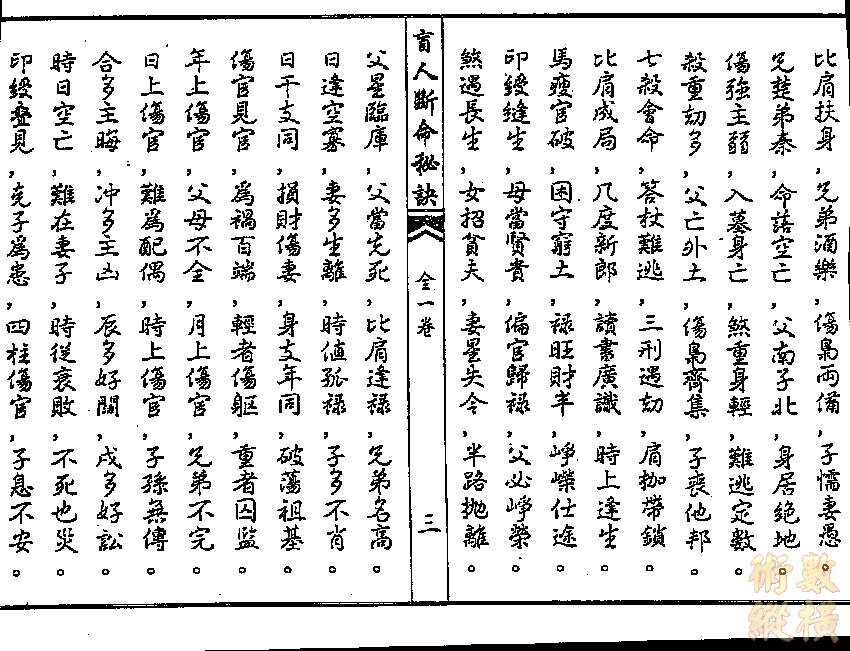 比肩扶身，兄弟酒樂，傷梟兩備，子懦妻愚。
兄楚弟秦，命詰空亡，父南子北，身居絕地。
傷強主弱，入墓身亡，煞重身輕，難逃定數。
殺重劫多，父亡外土，傷梟齊集，子喪他邦。
七殺會命，笞杖難逃，三刑遇劫，肩枷帶鎖。
比肩成局，几度新郎，讀書廣識，時上逢生。
馬瘦官破，困守窮土，祿旺財丰，崢嶸仕途。
印綬逢生，母當賢貴，偏官歸祿，父必崢榮。
煞遇長生，女招貧夫，妻星失令，半路拋離。
盲人斷命秘訣
全一卷
三
父星臨庫，父當先死，比肩逢祿，兄弟名高。
日逢空寡，妻多生離，時值孤祿，子多不肖。
日干支同，損財傷妻，身支年同，破蕩祖基。
傷官見官，為禍百端，輕者傷軀，重者囚監。
年上傷官，父母不全，月上傷官，兄弟不完。
日上傷官，難為配偶，時上傷官，子孫無傳。
合多主晦，冲多主凶，辰多好鬪，戌多好訟。
時日空亡，難在妻子，時從衰敗，不死也災。
印綬疊見，克子為患，四柱傷官，子息不安。
數橫
術縱